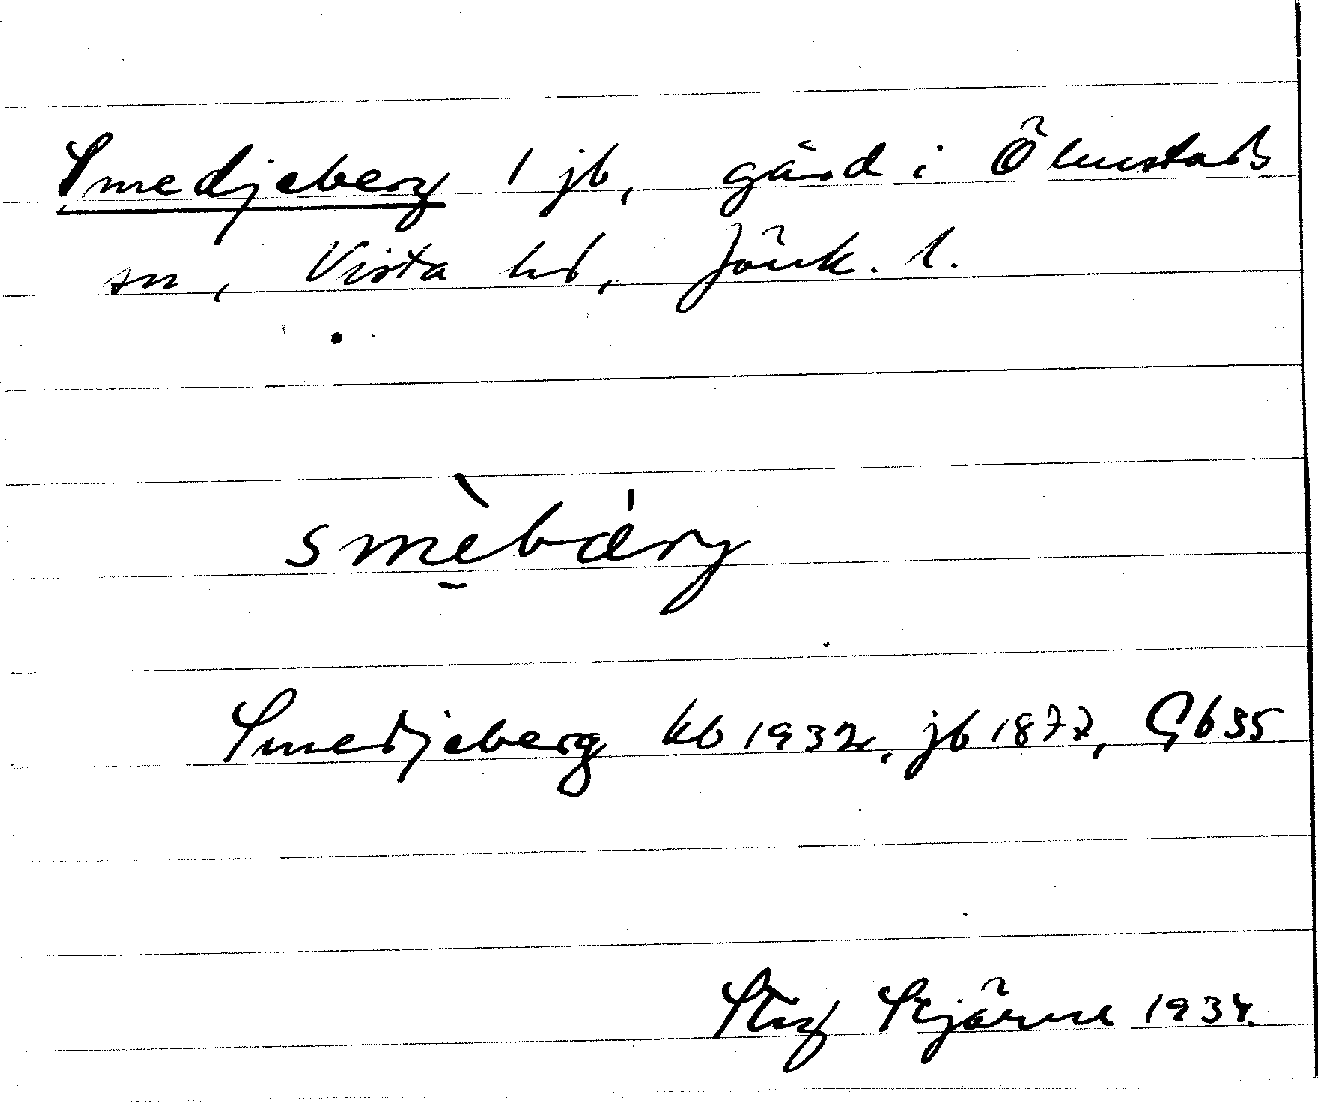 Smedjeberg 1 jb, gård i Ölmstads
sn, Vista hd, Jönk. l.
smèbárg
Smedjeberg kb 1932, jb 1877, Gb 35
Stig Stjärne 1934.